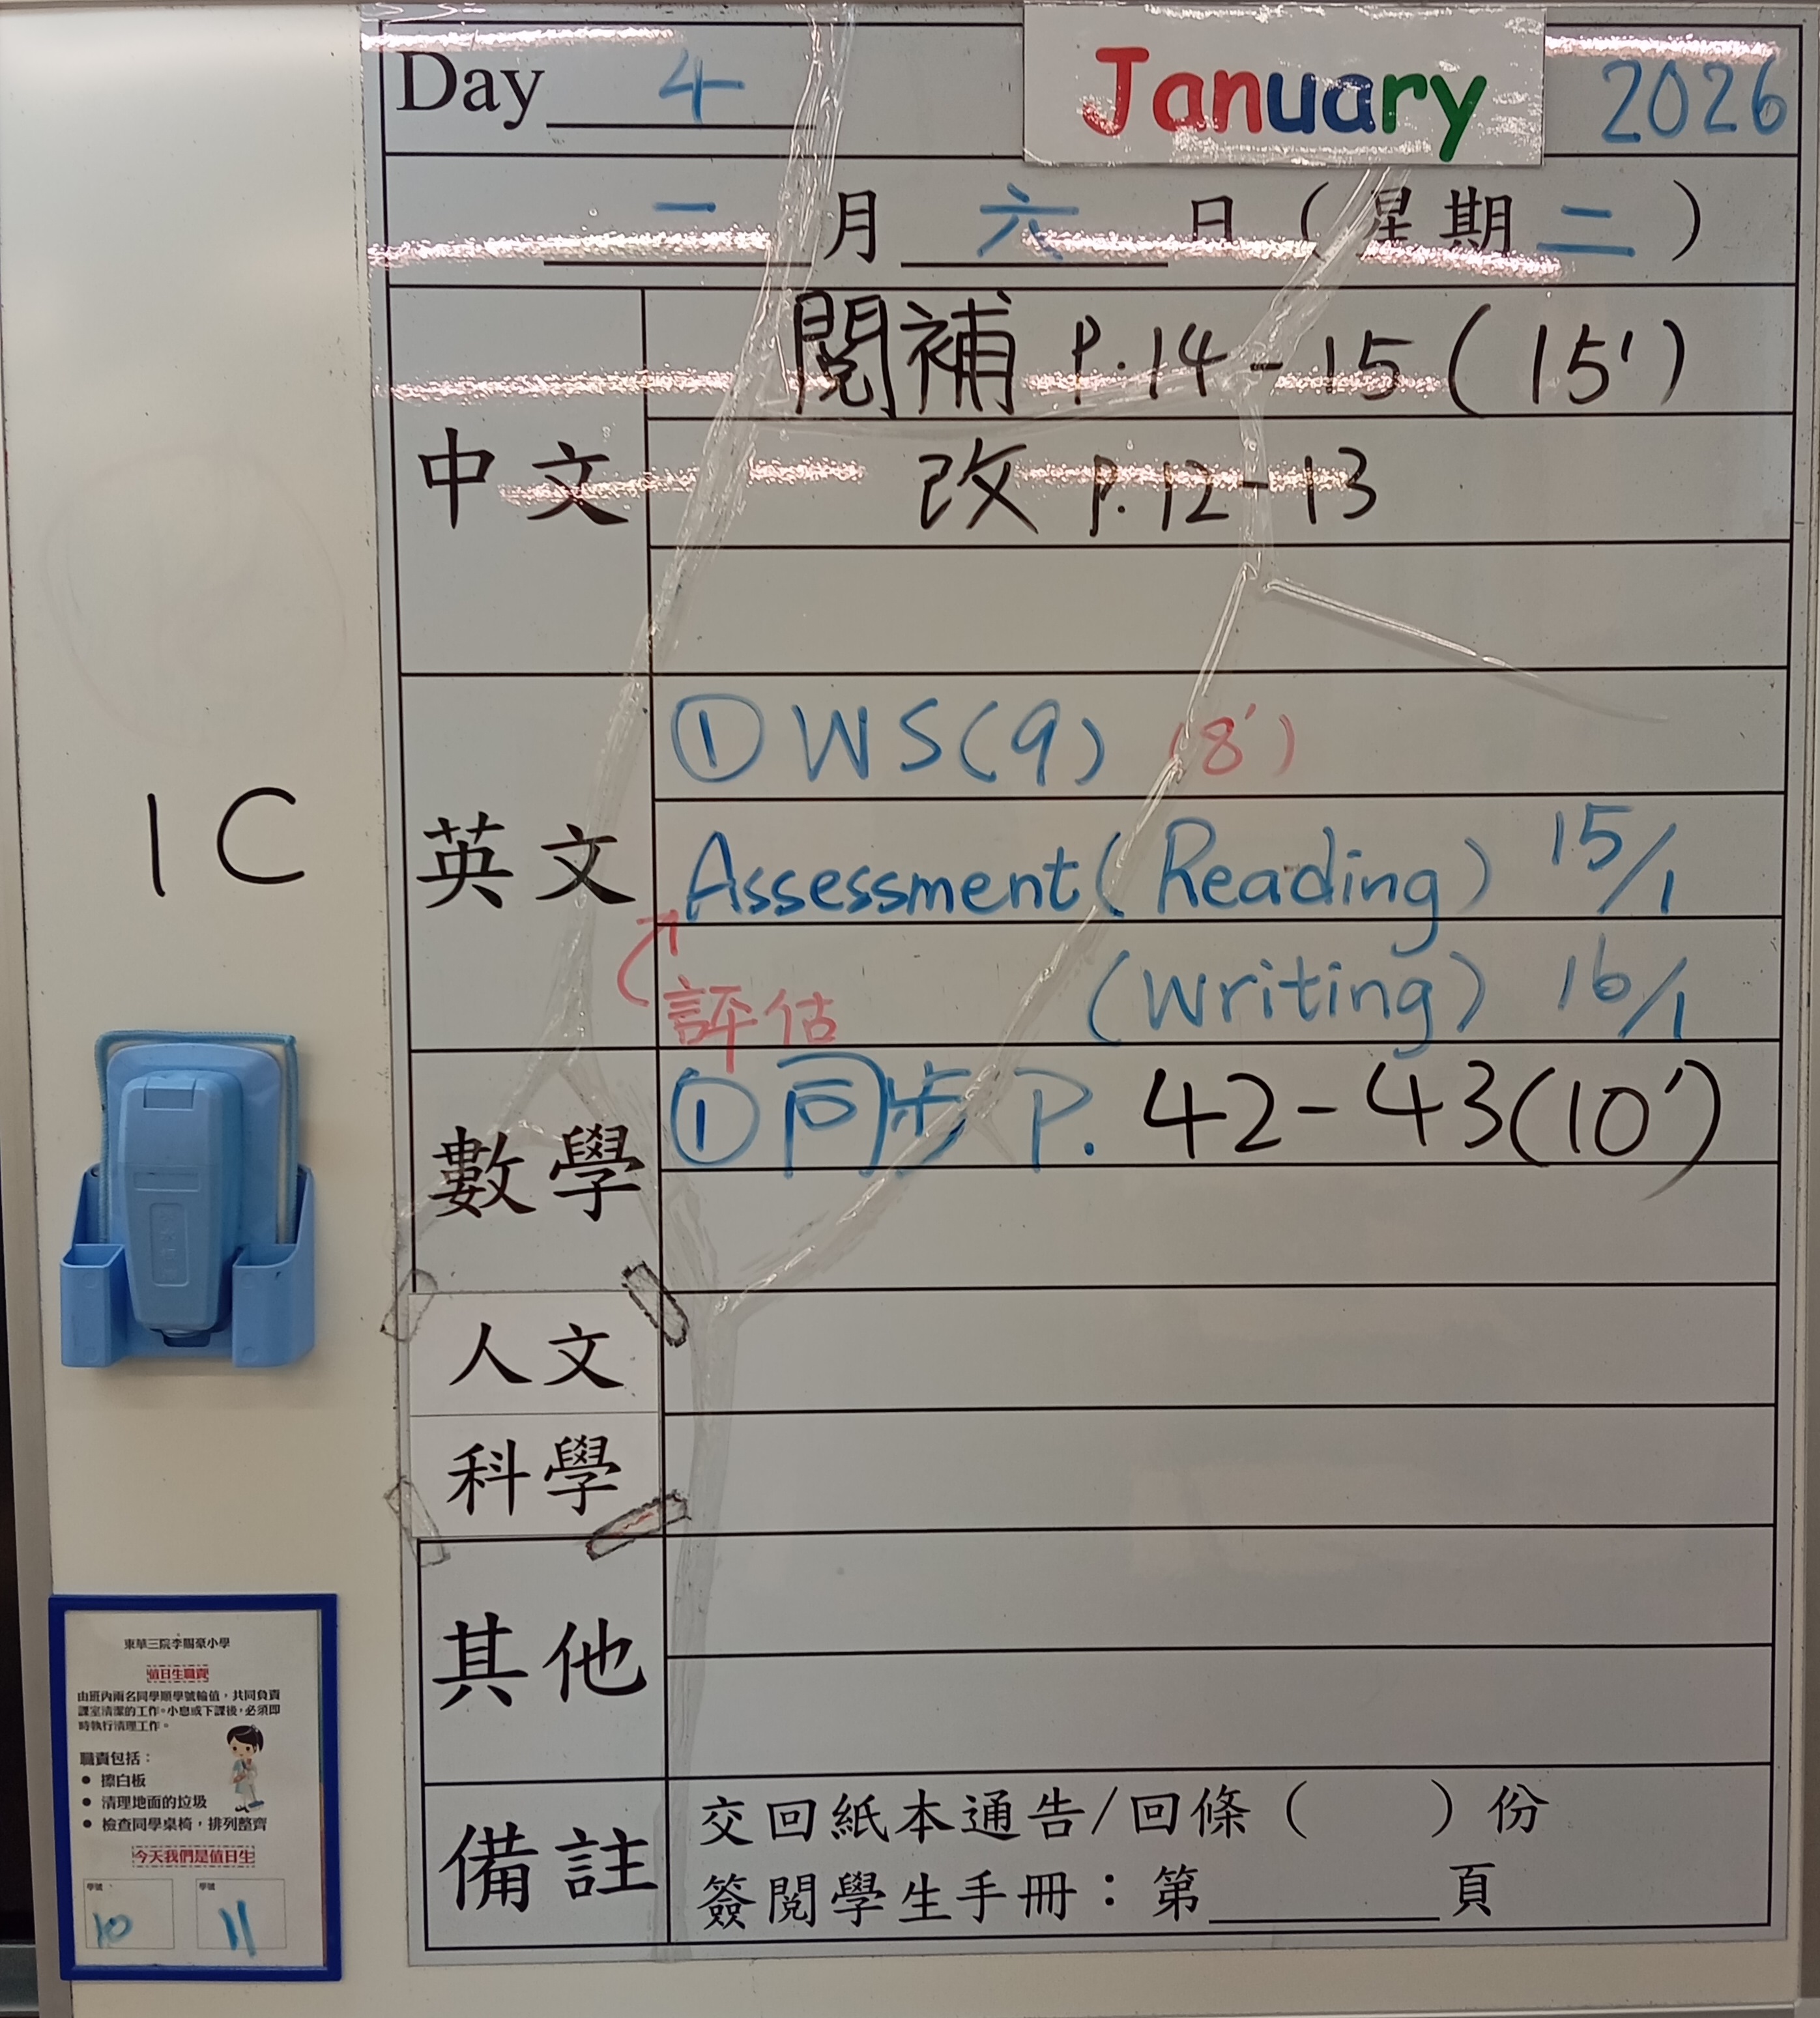 Day 4 January 2026
一 月 六 日 ( 星期 二 )
中文
閱補 P.14-15 ( 15' )
改 P.12-13
英文
① WS(9) (8')
Assessment ( Reading ) 15/1
評估 ( Writing ) 16/1
數學
① 同步 P. 42-43(10')
人文
科學
其他
備註
交回紙本通告/回條 ( ) 份
簽閱學生手冊：第 頁
1C
東華三院李賜豪小學
值日生職責
由班內兩名同學順學號輪值，共同負責
課室清潔的工作。小息或下課後，必須即
時執行清理工作。
職責包括：
● 擦白板
● 清理地面的垃圾
● 檢查同學桌椅，排列整齊
今天我們是值日生
學號 學號
10 11